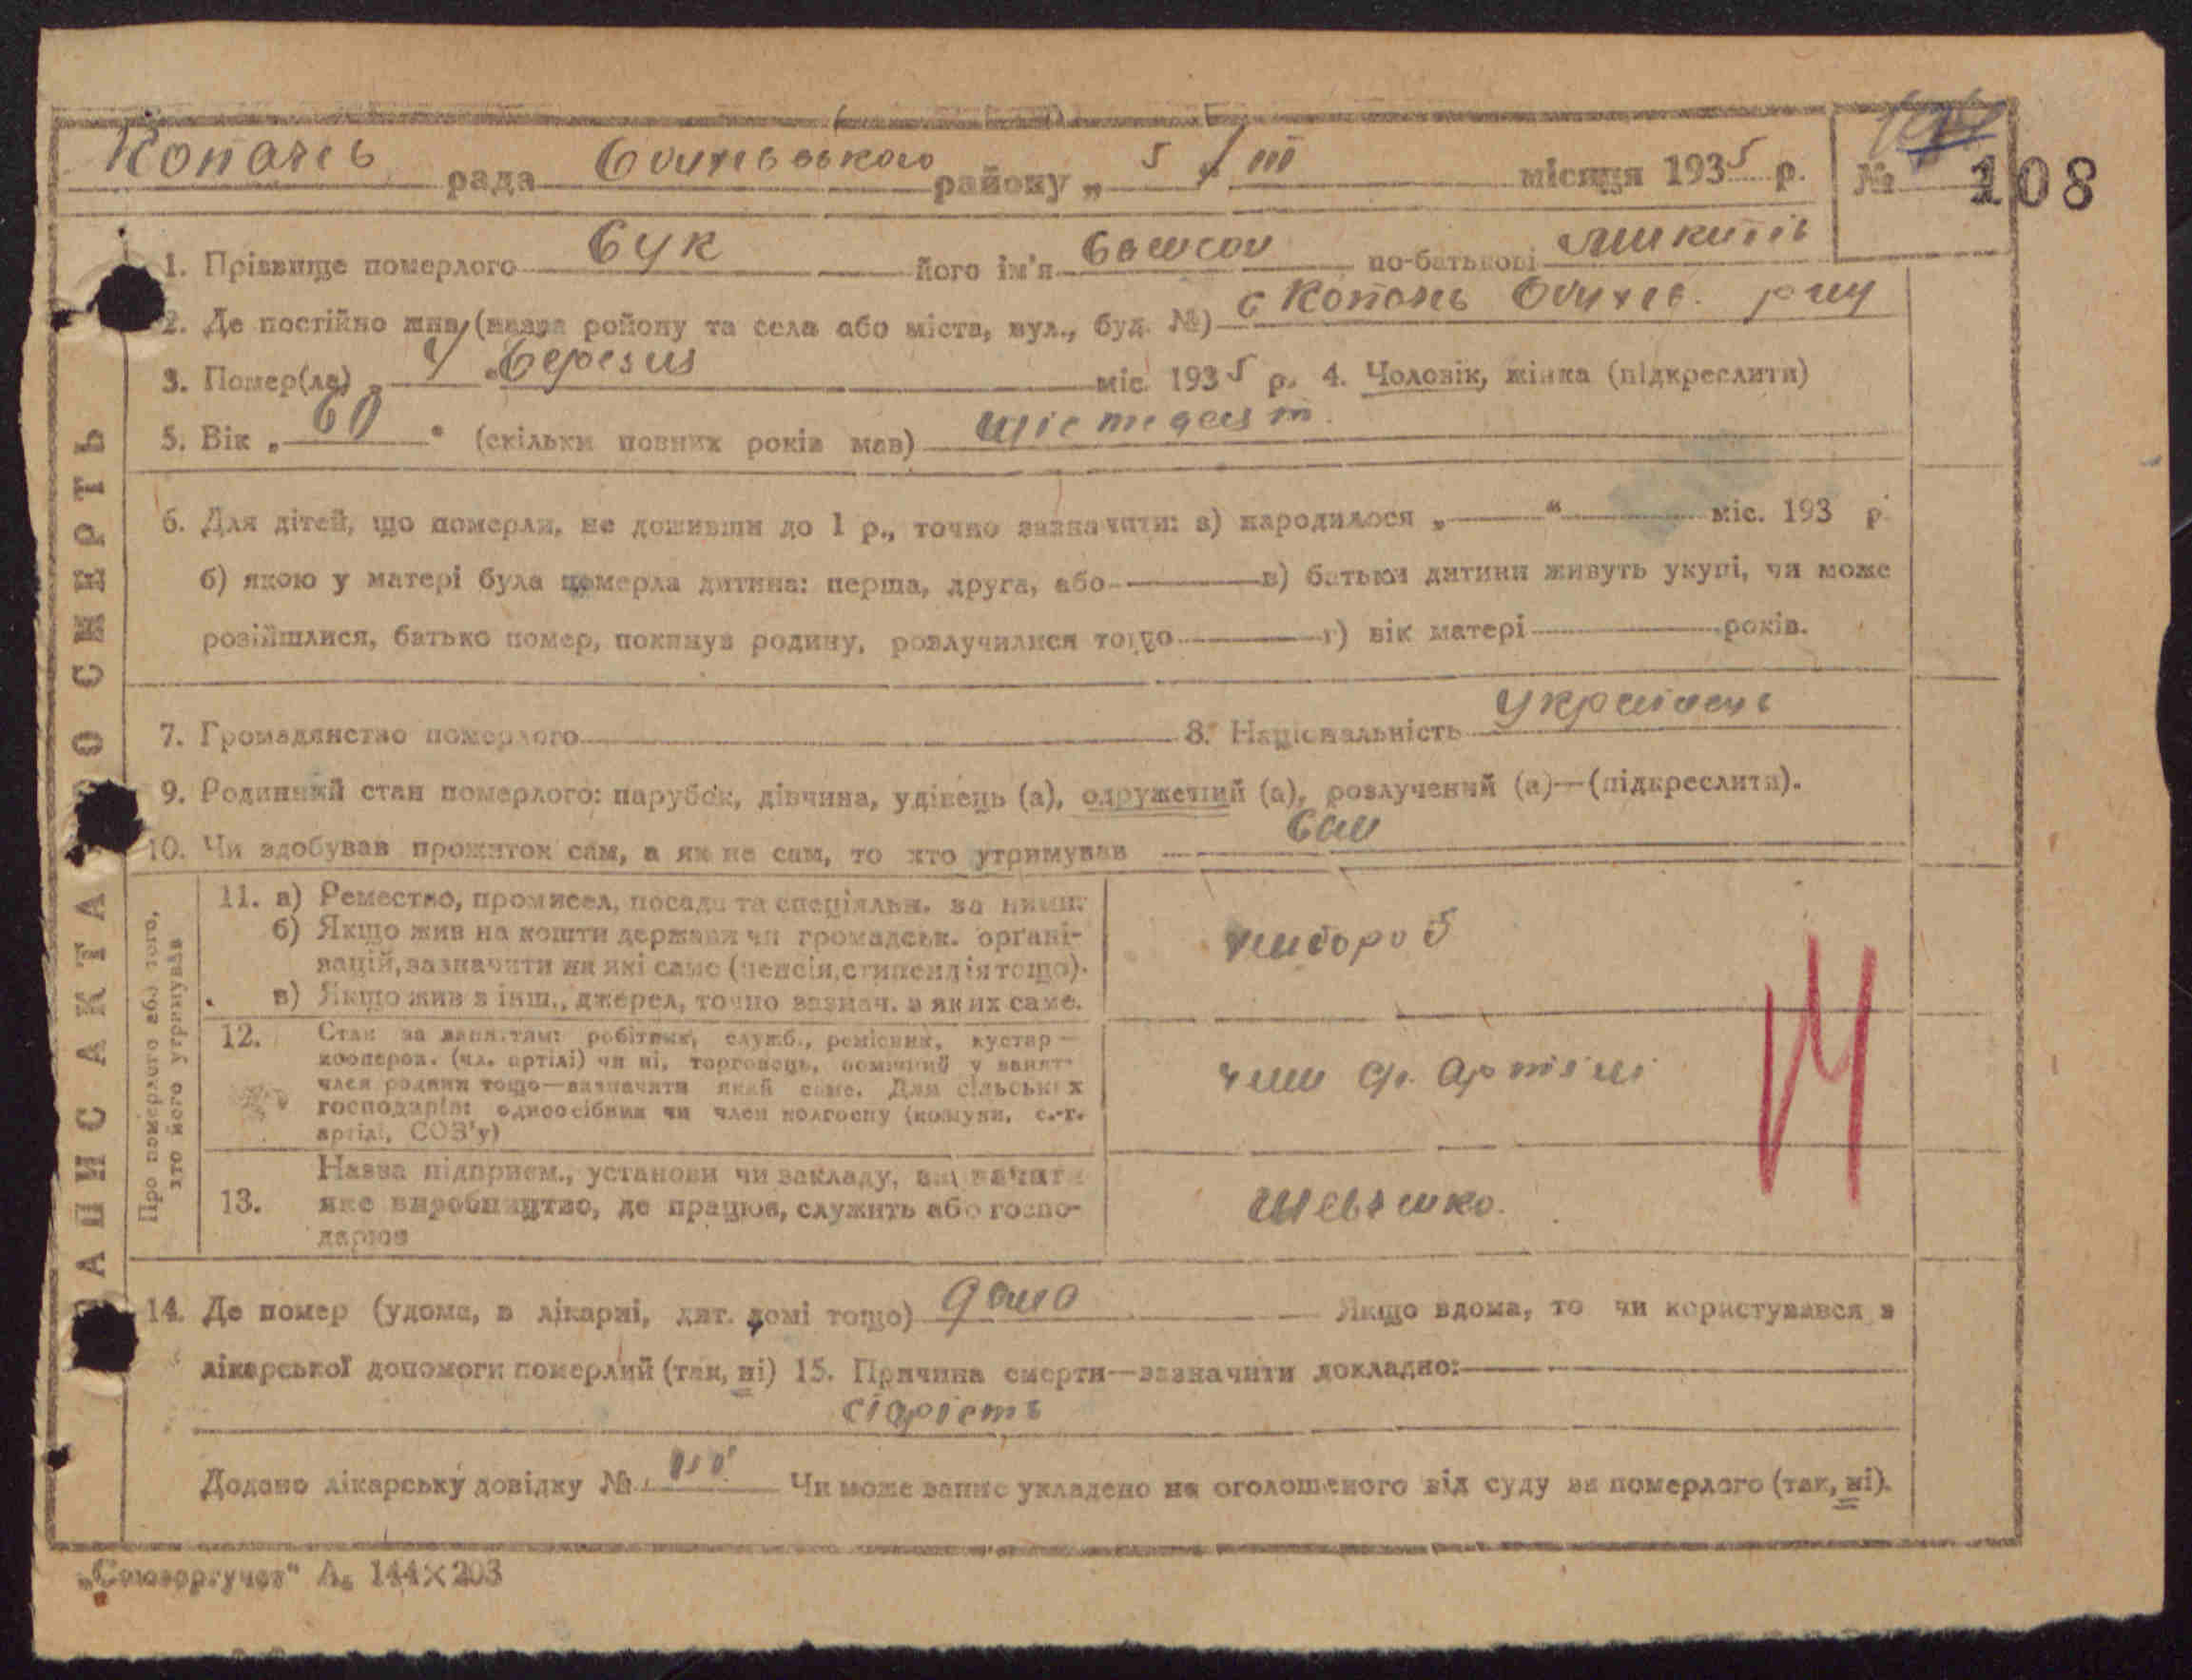 Копачів рада Обухівського району „ 5 / III місяця 1935 р. № 108
1. Прізвище померлого Бук його ім'я по-батькові Микитів
2. Де постійно жив (назва району та села або міста, вул., буд. №) с Копачів Обухів. р-ну
3. Помер(ла) „ 4 " березня міс. 1935 р. 4. Чоловік, жінка (підкреслити)
5. Вік „ 60 " (скільки повних років мав) шістидесят
6. Для дітей, що померли, не доживши до 1 р., точно зазначити: а) народилося „ — " міс. 193 р.
б) якою у матері була померла дитина: перша, друга, або — в) батьки дитини живуть укупі, чи може
розійшлися, батько помер, покинув родину, розлучилися тощо — г) вік матері — років.
7. Громадянство померлого 8. Національність Українець
9. Родинний стан померлого: парубок, дівчина, удівець (а), одружений (а), розлучений (а)—(підкреслити).
10. Чи здобував прожиток сам, а як не сам, то хто утримував сам
ЗАПИС АКТА ПРО СМЕРТЬ
Про померлого або того,
хто його утримував
11. а) Ремество, промисел, посада та спеціяльн. за ними:
б) Якщо жив на кошти держави чи громадськ. органі-
зацій, зазначити на які саме (пенсія, стипендія тощо).
в) Якщо жив з інш., джерел, точно зазнач. з яких саме.
хлібороб
12. Стан за заняттям: робітник, служб., ремісник, кустар—
кооперов. (чл. артілі) чи ні, торговець, помічний у занят.
член родини тощо—зазначити який саме. Для сільських
господарів: одноосібник чи член колгоспу (комуни, с.-г.
артілі, СОЗ'у)
член с/г. артілі
13. Назва підприєм., установи чи закладу, зазначити
яке виробництво, де працює, служить або госпо-
дарює
Шевченко.
14. Де помер (удома, в лікарні, дит. домі тощо) дома Якщо вдома, то чи користувався з
лікарської допомоги померлий (так, ні) 15. Причина смерти—зазначити докладно:
старість
Додано лікарську довідку № Чи може запис укладено на оголошеного від суду за померлого (так, ні).
„Союзоргучет" А₅ 144×203